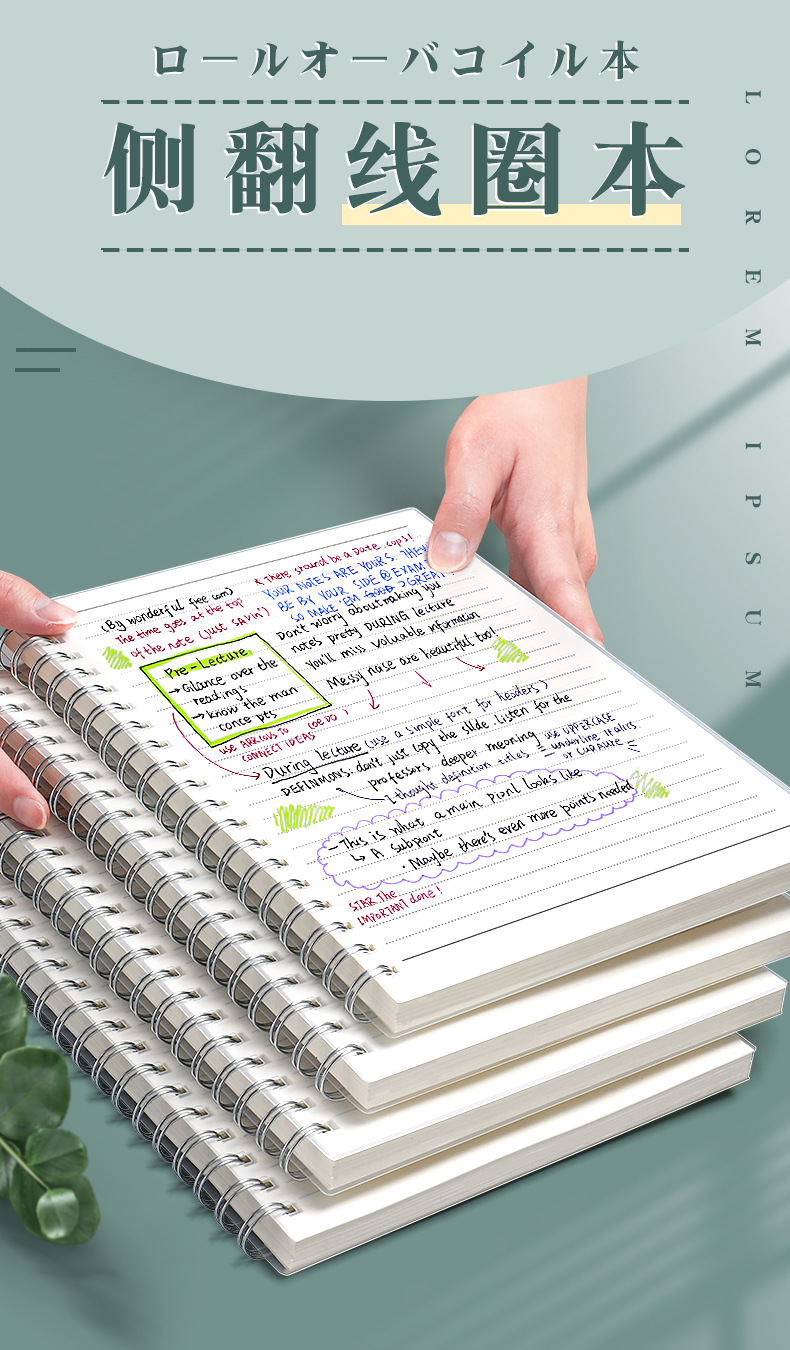 ロールオーバコイル本
侧翻线圈本
LOREM IPSUM
& There stound be a Date .cops!
(By wonderful free com)
YOUR NOTES ARE YOURS. THEY
The time goes at the top
BE BY YOUR SIDE @ EXAM
of the note (Just SAvin')
SO MAKE 'EM GREAT!
Don't worry about making you
notes pretty DURING lecture
You'll miss valuable information
Messy nase are beautiful too!
Pre-Lecture
→Glance over the
readings
→know the man
conce pts
use ARROWS To (oe DO)
CONNECT IDEAS
During lecture (use a simple font for headers)
DEFINMONS: don't just copy the slide Listen for the
professors deeper meaning
use UPPERCASE
underline Italics
or CUPAURE
thought definition titles
-This is what a main pionl looks like
↳ A subpiont
· Maybe there's even more points needed
STAR The
IMPORTANT done!